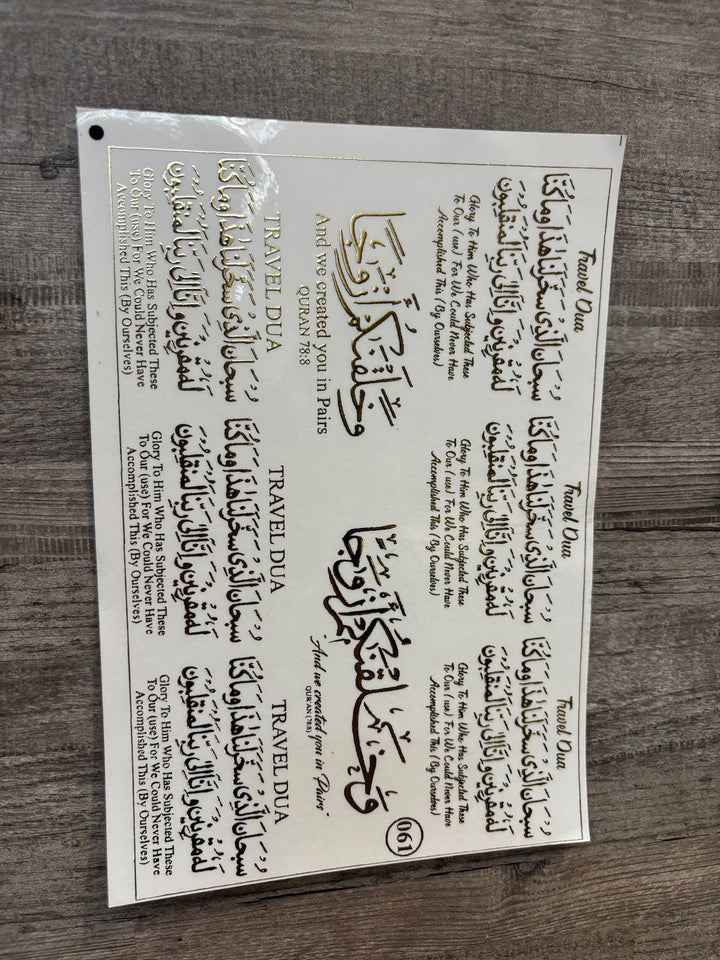 Travel Dua
سُبْحَانَ الَّذِي سَخَّرَ لَنَا هٰذَا وَمَا كُنَّا
لَهُ مُقْرِنِينَ وَإِنَّا إِلَىٰ رَبِّنَا لَمُنقَلِبُونَ
Glory To Him Who Has Subjected These
To Our ( use ) For We Could Never Have
Accomplished This ( By Ourselves)
Travel Dua
سُبْحَانَ الَّذِي سَخَّرَ لَنَا هٰذَا وَمَا كُنَّا
لَهُ مُقْرِنِينَ وَإِنَّا إِلَىٰ رَبِّنَا لَمُنقَلِبُونَ
Glory To Him Who Has Subjected These
To Our ( use ) For We Could Never Have
Accomplished This ( By Ourselves)
Travel Dua
سُبْحَانَ الَّذِي سَخَّرَ لَنَا هٰذَا وَمَا كُنَّا
لَهُ مُقْرِنِينَ وَإِنَّا إِلَىٰ رَبِّنَا لَمُنقَلِبُونَ
Glory To Him Who Has Subjected These
To Our ( use ) For We Could Never Have
Accomplished This ( By Ourselves)
وَخَلَقْنَٰكُمْ أَزْوَٰجًا
And we created you in Pairs
QURAN 78:8
وَخَلَقْنَٰكُمْ أَزْوَٰجًا
"And we created you in Pairs"
QURAN (78:8)
061
TRAVEL DUA
سُبْحَانَ الَّذِي سَخَّرَ لَنَا هٰذَا وَمَا كُنَّا
لَهُ مُقْرِنِينَ وَإِنَّا إِلَىٰ رَبِّنَا لَمُنقَلِبُونَ
Glory To Him Who Has Subjected These
To Our (use) For We Could Never Have
Accomplished This (By Ourselves)
TRAVEL DUA
سُبْحَانَ الَّذِي سَخَّرَ لَنَا هٰذَا وَمَا كُنَّا
لَهُ مُقْرِنِينَ وَإِنَّا إِلَىٰ رَبِّنَا لَمُنقَلِبُونَ
Glory To Him Who Has Subjected These
To Our (use) For We Could Never Have
Accomplished This (By Ourselves)
TRAVEL DUA
سُبْحَانَ الَّذِي سَخَّرَ لَنَا هٰذَا وَمَا كُنَّا
لَهُ مُقْرِنِينَ وَإِنَّا إِلَىٰ رَبِّنَا لَمُنقَلِبُونَ
Glory To Him Who Has Subjected These
To Our (use) For We Could Never Have
Accomplished This (By Ourselves)